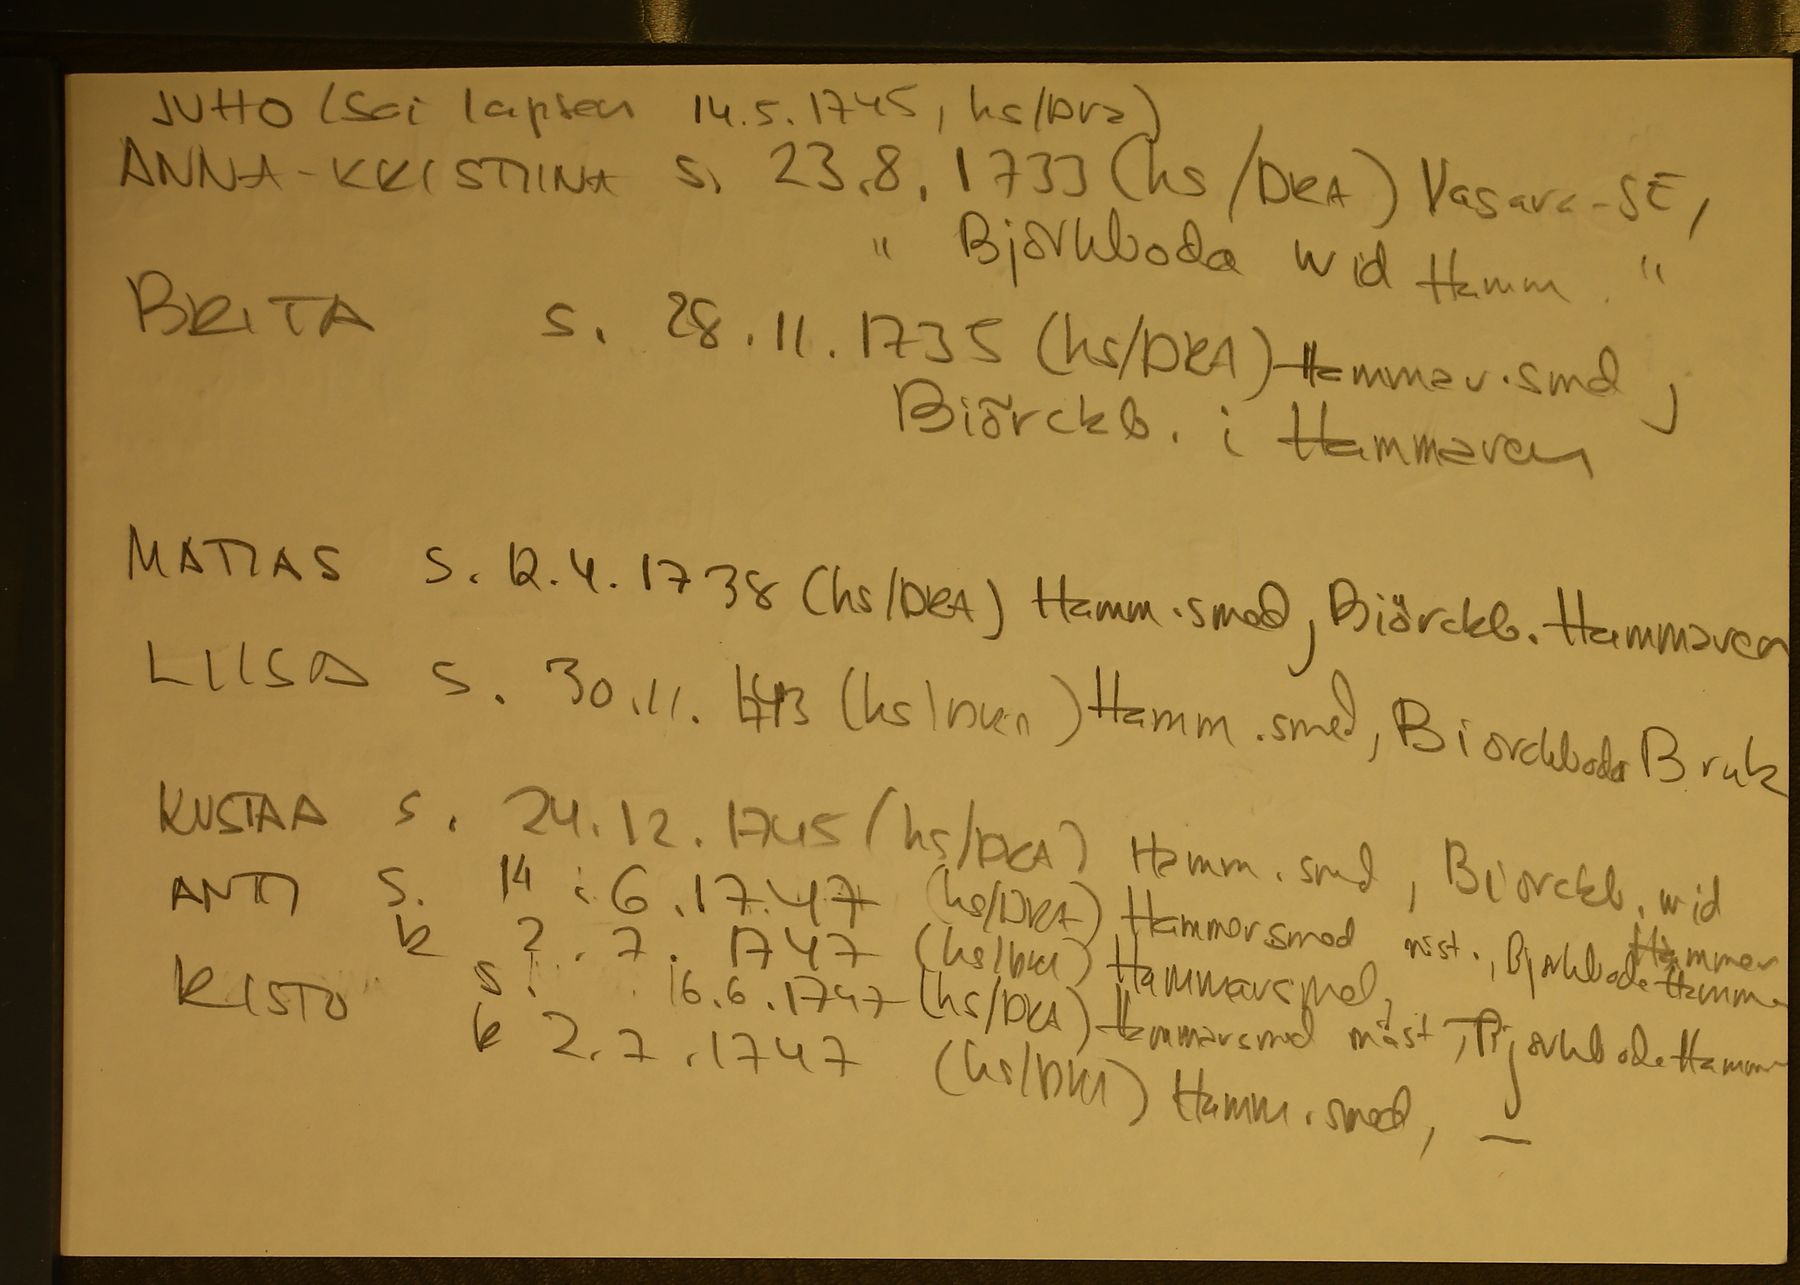 JUHO (sai lapsen 14.5.1745, hs/DRA)
ANNA-KRISTIINA s. 23.8.1733 (hs/DRA) Vasara-SE,
" Björkboda wid Hamm. "
BRITA s. 28.11.1735 (hs/DRA) Hammar.smd,
Biörckb. i Hammaren
MATIAS s. 12.4.1738 (hs/DRA) Hamm.smed, Biörckb. Hammaren
LIISA s. 30.11. 1743 (hs/DRA) Hamm.smed, Biorckboda Bruk
KUSTAA s. 24.12.1745 (hs/DKA) Hamm.smd, Biorckb. wid Hammer
ANTI s. 14.6.1747 (hs/DRA) Hammarsmed mäst., Bjorkboda Hamma
k 2.7.1747 (hs/DRA) Hammarsmed,
RISTO s. 16.6.1747 (hs/DRA) Hammarsmed mäst, Bjorkboda Hamm
k 2.7.1747 (hs/DRA) Hamm.smed, —